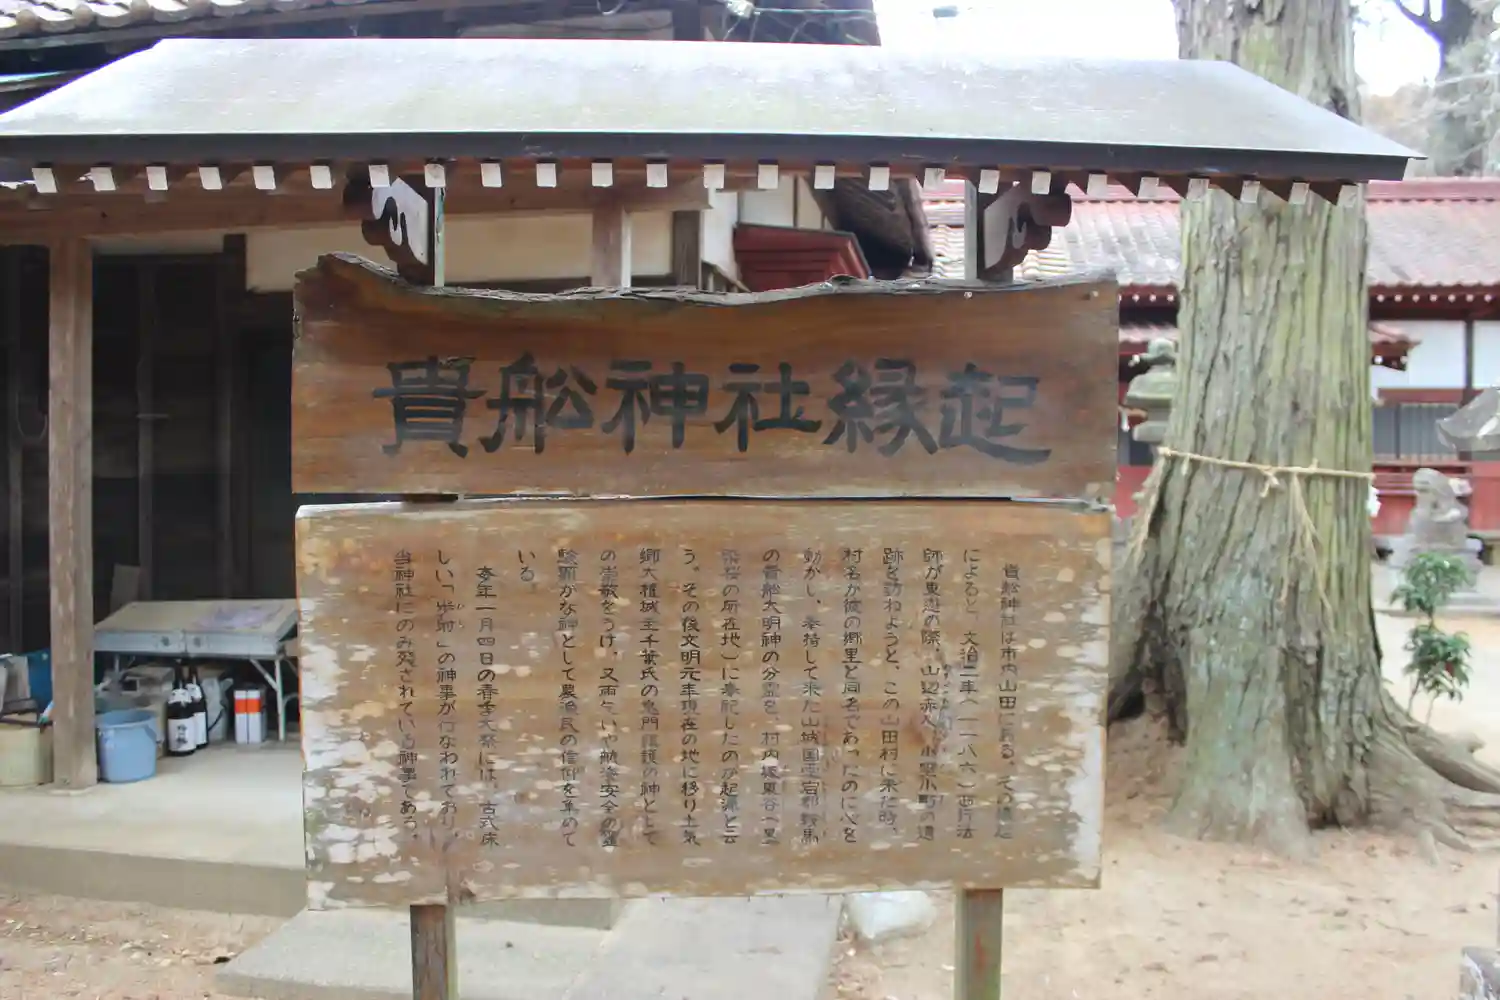 貴船神社縁起
貴船神社は市内山田に在る。その縁起
によると、文治二年(一一八六)西行法
師が東遊の際、山辺赤人、小野小町の遺
跡を訪ねようと、この山田村に来た時、
村名が彼の郷里と同名であったのに心を
動かし、奉持して来た山城国愛宕郡鞍馬
の貴船大明神の分霊を、村内坂東谷(墨
染桜の所在地)に奉祀したのが起源と云
う。その後文明元年現在の地に移り土気
郷大椎城主千葉氏の鬼門鎮護の神として
の崇敬をうけ、又雨乞いや航海安全の霊
験顕かな神として農漁民の信仰を集めて
いる。
毎年一月四日の春季大祭には、古式床
しい「歩射」の神事が行なわれており、
当神社にのみ残されている神事である。